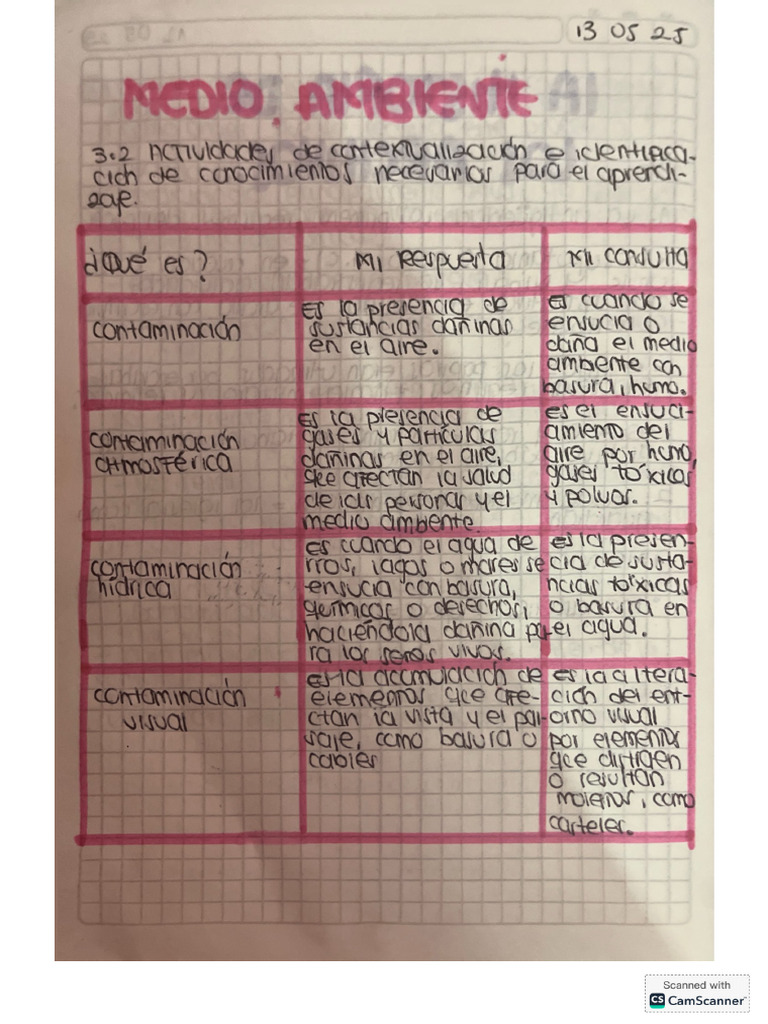 13 05 25
MEDIO AMBIENTE
3.2 Actividades de contextualización e identifica-
ción de conocimientos necesarios para el aprendi-
zaje.
¿Qué es?
Mi Respuesta
Mi consulta
contaminación
Es la presencia de
sustancias dañinas
en el aire.
Es cuando se
ensucia o
daña el medio
ambiente con
basura, humo.
contaminación
atmosférica
Es la presencia de
gases y partículas
dañinas en el aire,
que afectan la salud
de las personas y el
medio ambiente.
es el ensuci-
amiento del
aire por humo,
gases tóxicos
y polvos.
contaminación
hídrica
es cuando el agua de
rios, lagos o mares se
ensucia con basura,
químicos o desechos,
haciéndola dañina pa-
ra los seres vivos.
es la presen-
cia de susta-
ncias tóxicas
o basura en
el agua.
contaminación
visual
es la acumulación de
elementos que afe-
ctan la vista y el pai-
saje, como basura o
cables
es la altera-
ción del ent-
orno visual
por elementos
que distrigen
o resultan
molestos, como
carteles.
Scanned with
CS CamScanner